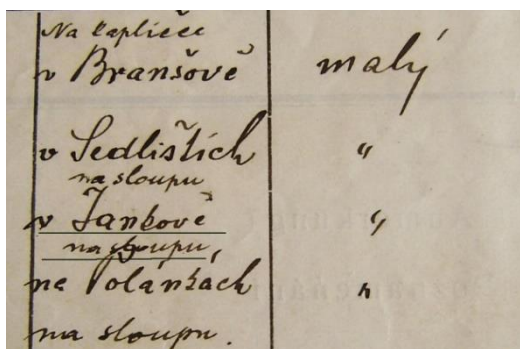 Na kapličce
v Branšově malý
v Sedlištích "
na sloupu
v Jankově "
na sloupu
na Polánkách "
na sloupu.